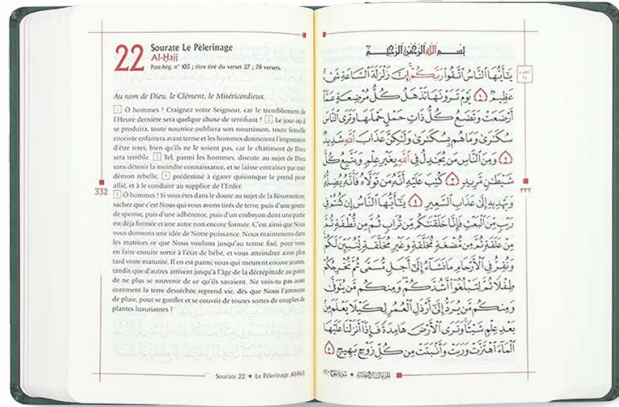 22
Sourate Le Pèlerinage
Al-Ḥajj
Post-hég. n° 103 ; titre tiré du verset 27 ; 78 versets.
Au nom de Dieu, le Clément, le Miséricordieux.
1 Ô hommes ! Craignez votre Seigneur, car le tremblement de
l'Heure dernière sera quelque chose de terrifiant ! 2 Le jour où il
se produira, toute nourrice oubliera son nourrisson, toute femelle
enceinte enfantera avant terme et les hommes donneront l'impression
d'être ivres, bien qu'ils ne le soient pas, car le châtiment de Dieu
sera terrible. 3 Tel, parmi les hommes, discute au sujet de Dieu
sans détenir la moindre connaissance, et se laisse entraîner par tout
démon rebelle, 4 prédestiné à égarer quiconque le prend pour
allié, et à le conduire au supplice de l'Enfer.
5 Ô hommes ! Si vous êtes dans le doute au sujet de la Résurrection,
sachez que c'est Nous qui vous avons tirés de terre, puis d'une goutte
de sperme, puis d'une adhérence, puis d'un embryon dont une partie
est déjà formée et une autre non encore formée. C'est ainsi que Nous
vous donnons une idée de Notre puissance. Nous maintenons dans
les matrices ce que Nous voulons jusqu'au terme fixé, pour vous
en faire ensuite sortir à l'état de bébé, et vous atteindrez ainsi plus
tard votre maturité. Il en est parmi vous qui meurent encore jeunes,
tandis que d'autres arrivent jusqu'à l'âge de la décrépitude au point
de ne plus se souvenir de ce qu'ils savaient. Ne vois-tu pas aussi
comment la terre desséchée reprend vie, dès que Nous l'arrosons
de pluie, pour se gonfler et se couvrir de toutes sortes de couples de
plantes luxuriantes !
332
Sourate 22 • Le Pèlerinage Al-Ḥajj
بِسْمِ اللَّهِ الرَّحْمَٰنِ الرَّحِيمِ
يَٰٓأَيُّهَا ٱلنَّاسُ ٱتَّقُوا۟ رَبَّكُمْ ۚ إِنَّ زَلْزَلَةَ ٱلسَّاعَةِ شَىْءٌ
عَظِيمٌ ١ يَوْمَ تَرَوْنَهَا تَذْهَلُ كُلُّ مُرْضِعَةٍ عَمَّآ
أَرْضَعَتْ وَتَضَعُ كُلُّ ذَاتِ حَمْلٍ حَمْلَهَا وَتَرَى ٱلنَّاسَ
سُكَٰرَىٰ وَمَا هُم بِسُكَٰرَىٰ وَلَٰكِنَّ عَذَابَ ٱللَّهِ شَدِيدٌ
٢ وَمِنَ ٱلنَّاسِ مَن يُجَٰدِلُ فِى ٱللَّهِ بِغَيْرِ عِلْمٍ وَيَتَّبِعُ كُلَّ
شَيْطَٰنٍ مَّرِيدٍ ٣ كُتِبَ عَلَيْهِ أَنَّهُۥ مَن تَوَلَّاهُ فَأَنَّهُۥ يُضِلُّهُۥ
وَيَهْدِيهِ إِلَىٰ عَذَابِ ٱلسَّعِيرِ ٤ يَٰٓأَيُّهَا ٱلنَّاسُ إِن كُنتُمْ فِى
رَيْبٍ مِّنَ ٱلْبَعْثِ فَإِنَّا خَلَقْنَٰكُم مِّن تُرَابٍ ثُمَّ مِن نُّطْفَةٍ ثُمَّ
مِنْ عَلَقَةٍ ثُمَّ مِن مُّضْغَةٍ مُّخَلَّقَةٍ وَغَيْرِ مُخَلَّقَةٍ لِّنُبَيِّنَ لَكُمْ ۚ
وَنُقِرُّ فِى ٱلْأَرْحَامِ مَا نَشَآءُ إِلَىٰٓ أَجَلٍ مُّسَمًّى ثُمَّ نُخْرِجُكُمْ
طِفْلًا ثُمَّ لِتَبْلُغُوٓا۟ أَشُدَّكُمْ ۖ وَمِنكُم مَّن يُتَوَفَّىٰ
وَمِنكُم مَّن يُرَدُّ إِلَىٰٓ أَرْذَلِ ٱلْعُمُرِ لِكَيْلَا يَعْلَمَ مِنۢ
بَعْدِ عِلْمٍ شَيْـًٔا ۚ وَتَرَى ٱلْأَرْضَ هَامِدَةً فَإِذَآ أَنزَلْنَا عَلَيْهَا
ٱلْمَآءَ ٱهْتَزَّتْ وَرَبَتْ وَأَنۢبَتَتْ مِن كُلِّ زَوْجٍۭ بَهِيجٍ ٥
٣٣٢